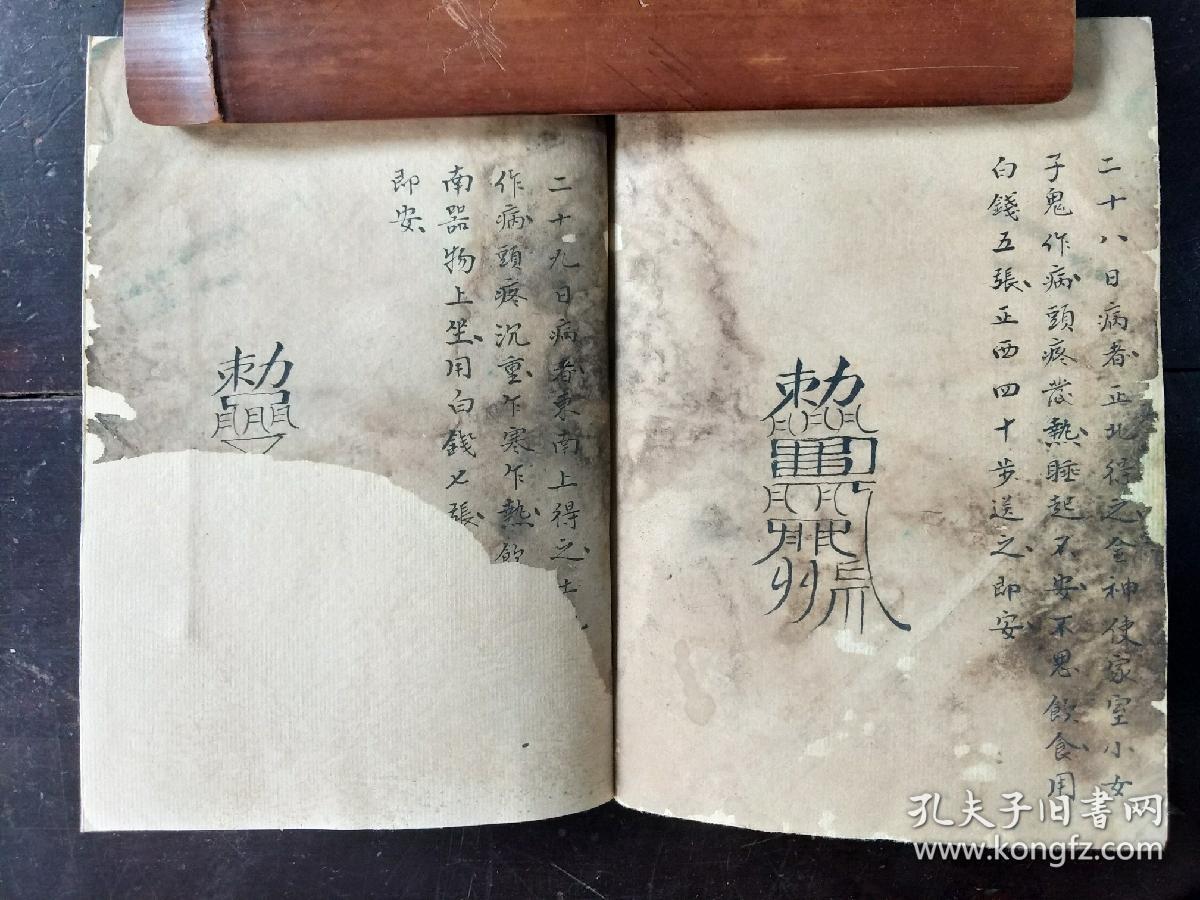 二十八日病者正北得之金神使家室小女
子鬼作病頭疼發熱睡起不安不思飲食用
白錢五張正西四十步送之即安
勅
二十九日病者東南上得之
作病頭疼沉重乍寒乍熱
南器物上坐用白錢七張
即安
勅
孔夫子旧书网
www.kongfz.com